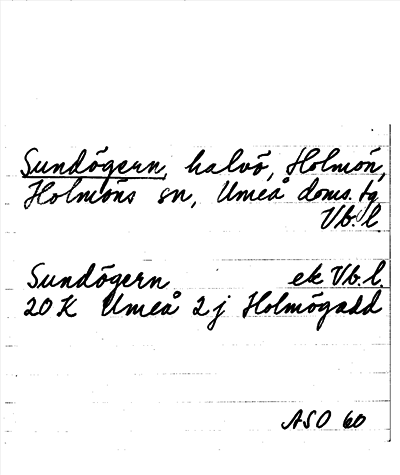 Sundögern, halvö, Holmön,
Holmöns sn, Umeå doms. tg
Vb. l.
Sundögern ek Vb. l.
20 K Umeå 2 j Holmögadd
ASO 60